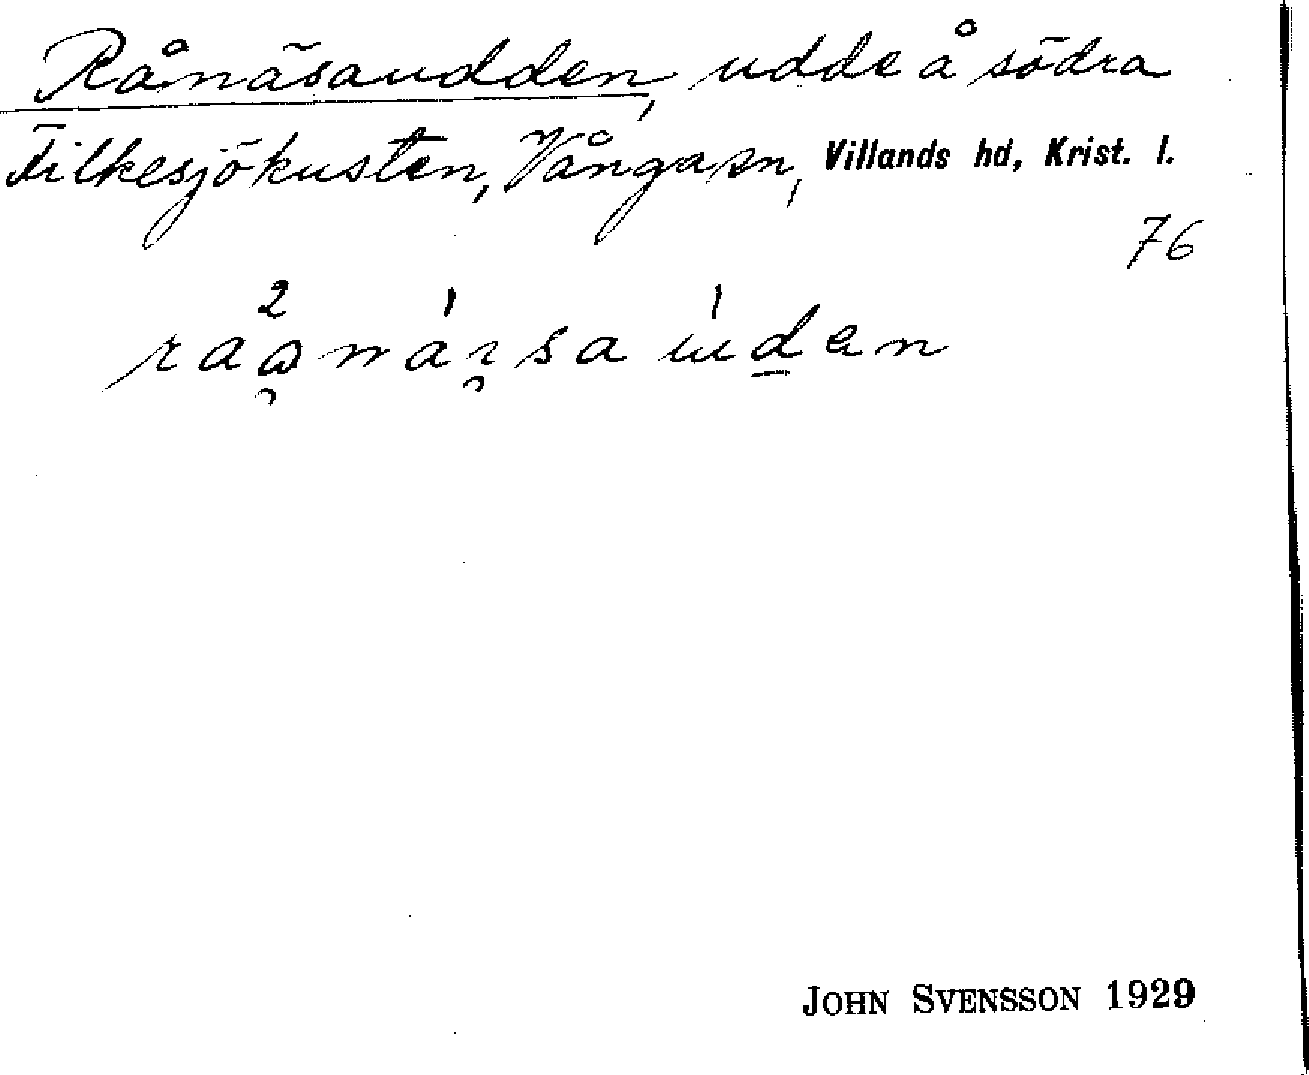 Rånäsaudden, udde å södra
Filkesjökusten, Vånga sn, Villands hd, Krist. l.
76
JOHN SVENSSON 1929